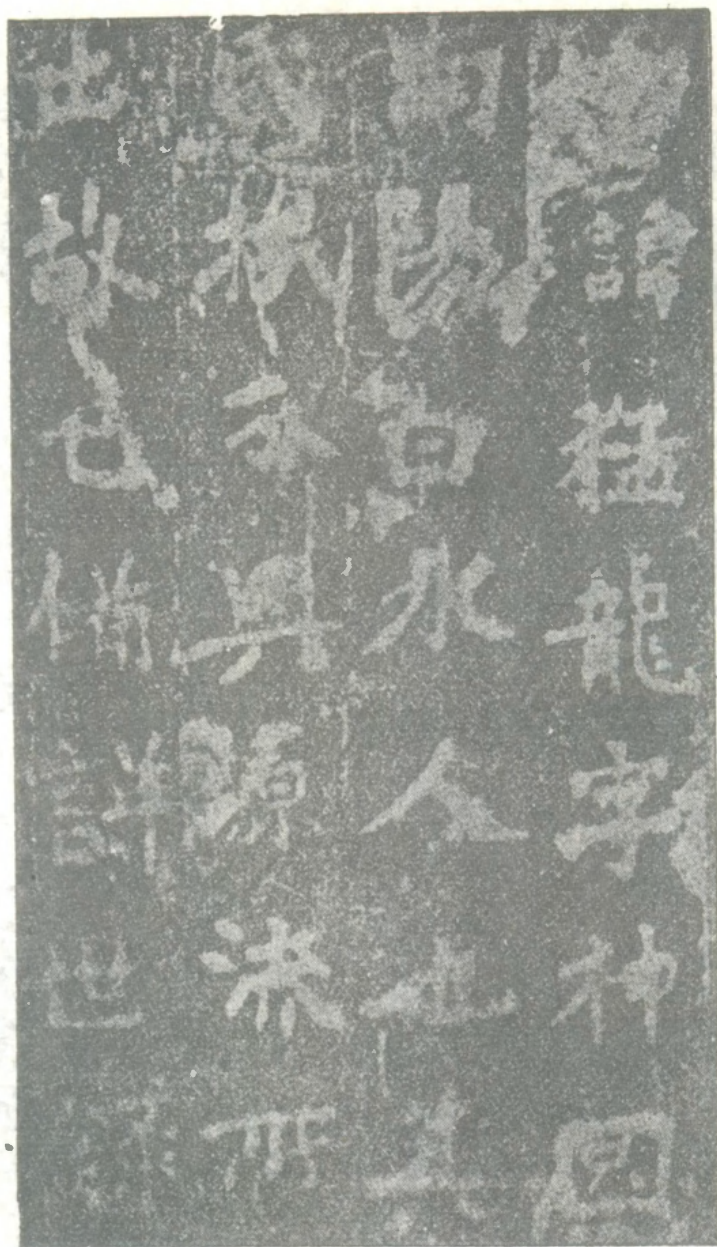 諱猛龍字神囧
南陽白水人也其
氏族分興源流所
出故已備詳世